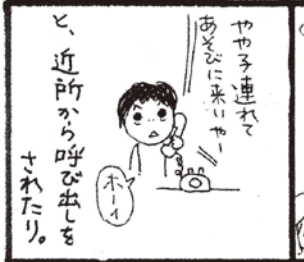 やや子連れて
あそびに来いやー
ホーイ
と、近所から呼び出しを
されたり。